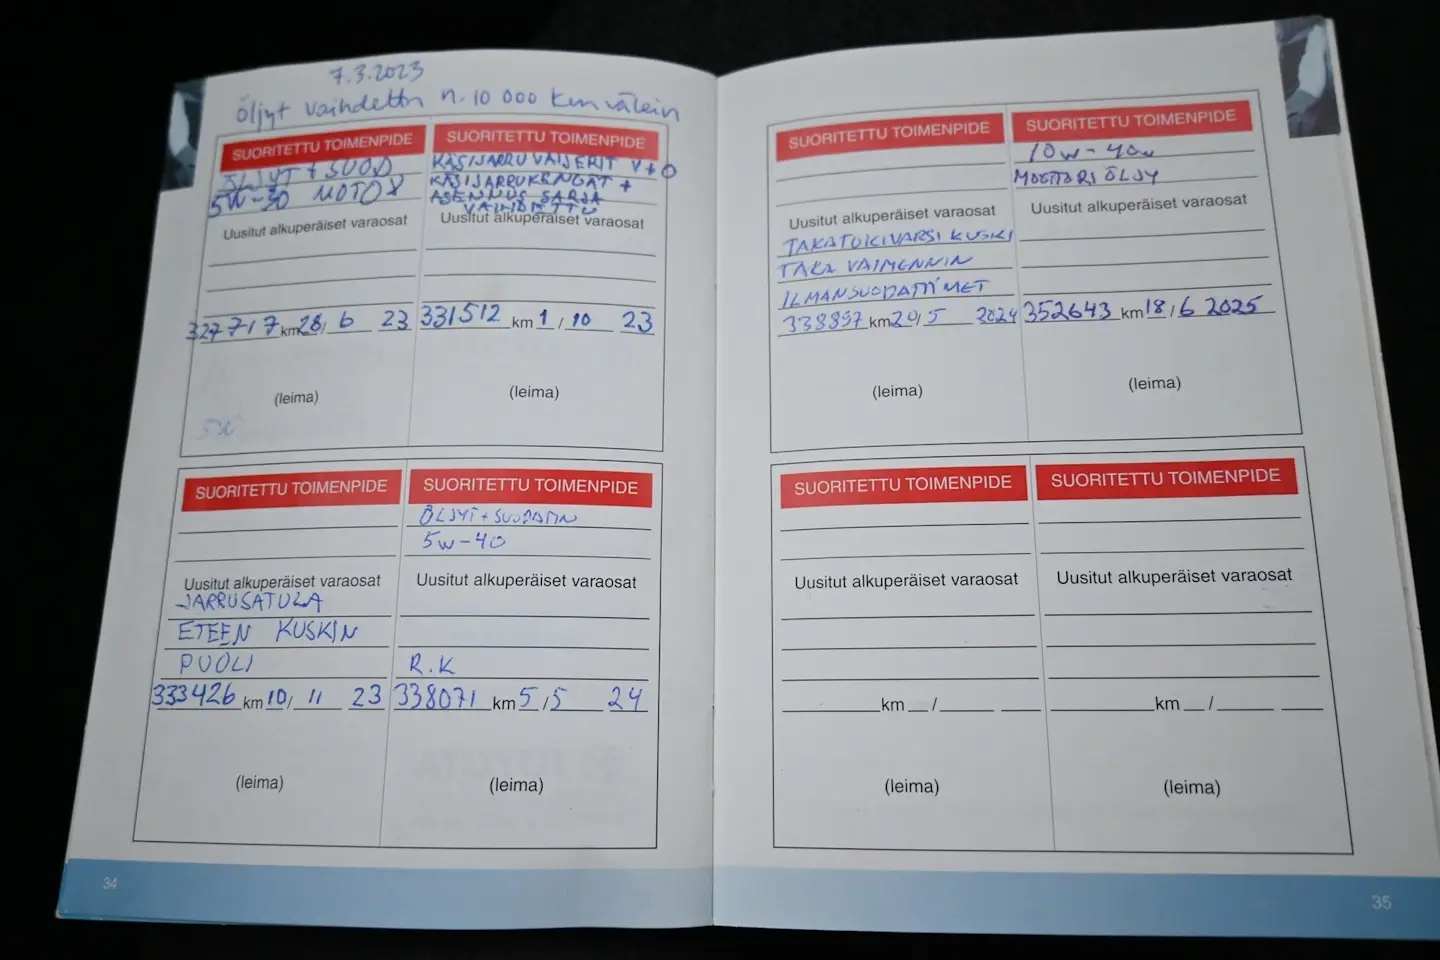 7.3.2023
öljyt vaihdettu n. 10 000 km välein
SUORITETTU TOIMENPIDE
ÖLJYT + SUOD
5W-30 MOTOX
Uusitut alkuperäiset varaosat
327717 km 28/6 23
(leima)
5W
SUORITETTU TOIMENPIDE
KÄSIJARRUVAIJERIT V+O
KÄSIJARRUKENGÄT +
ASENNUS SARJA
VAIHDETTU
Uusitut alkuperäiset varaosat
331512 km 1/10 23
(leima)
SUORITETTU TOIMENPIDE
Uusitut alkuperäiset varaosat
JARRUSATULA
ETEEN KUSKIN
PUOLI
333426 km 10/11 23
(leima)
SUORITETTU TOIMENPIDE
ÖLJYT + SUODATIN
5W-40
Uusitut alkuperäiset varaosat
R.K
338071 km 5/5 24
(leima)
34
SUORITETTU TOIMENPIDE
Uusitut alkuperäiset varaosat
TAKATUKIVARSI KUSKI
TAKA VAIMENNIN
ILMANSUODATTIMET
338897 km 20/5 2024
(leima)
SUORITETTU TOIMENPIDE
10W-40W
MOOTTORI ÖLJY
Uusitut alkuperäiset varaosat
352643 km 18/6 2025
(leima)
SUORITETTU TOIMENPIDE
Uusitut alkuperäiset varaosat
km /
(leima)
SUORITETTU TOIMENPIDE
Uusitut alkuperäiset varaosat
km /
(leima)
35